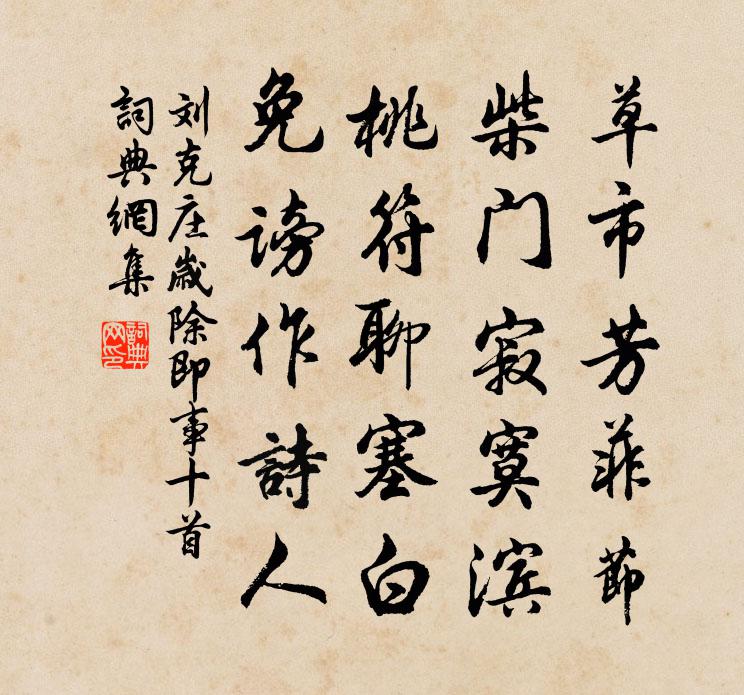 草市芳菲節
柴门寂寞滨
桃符聊塞白
免谤作詩人
刘克庄歲除即事十首
詞典網集
詞典网印